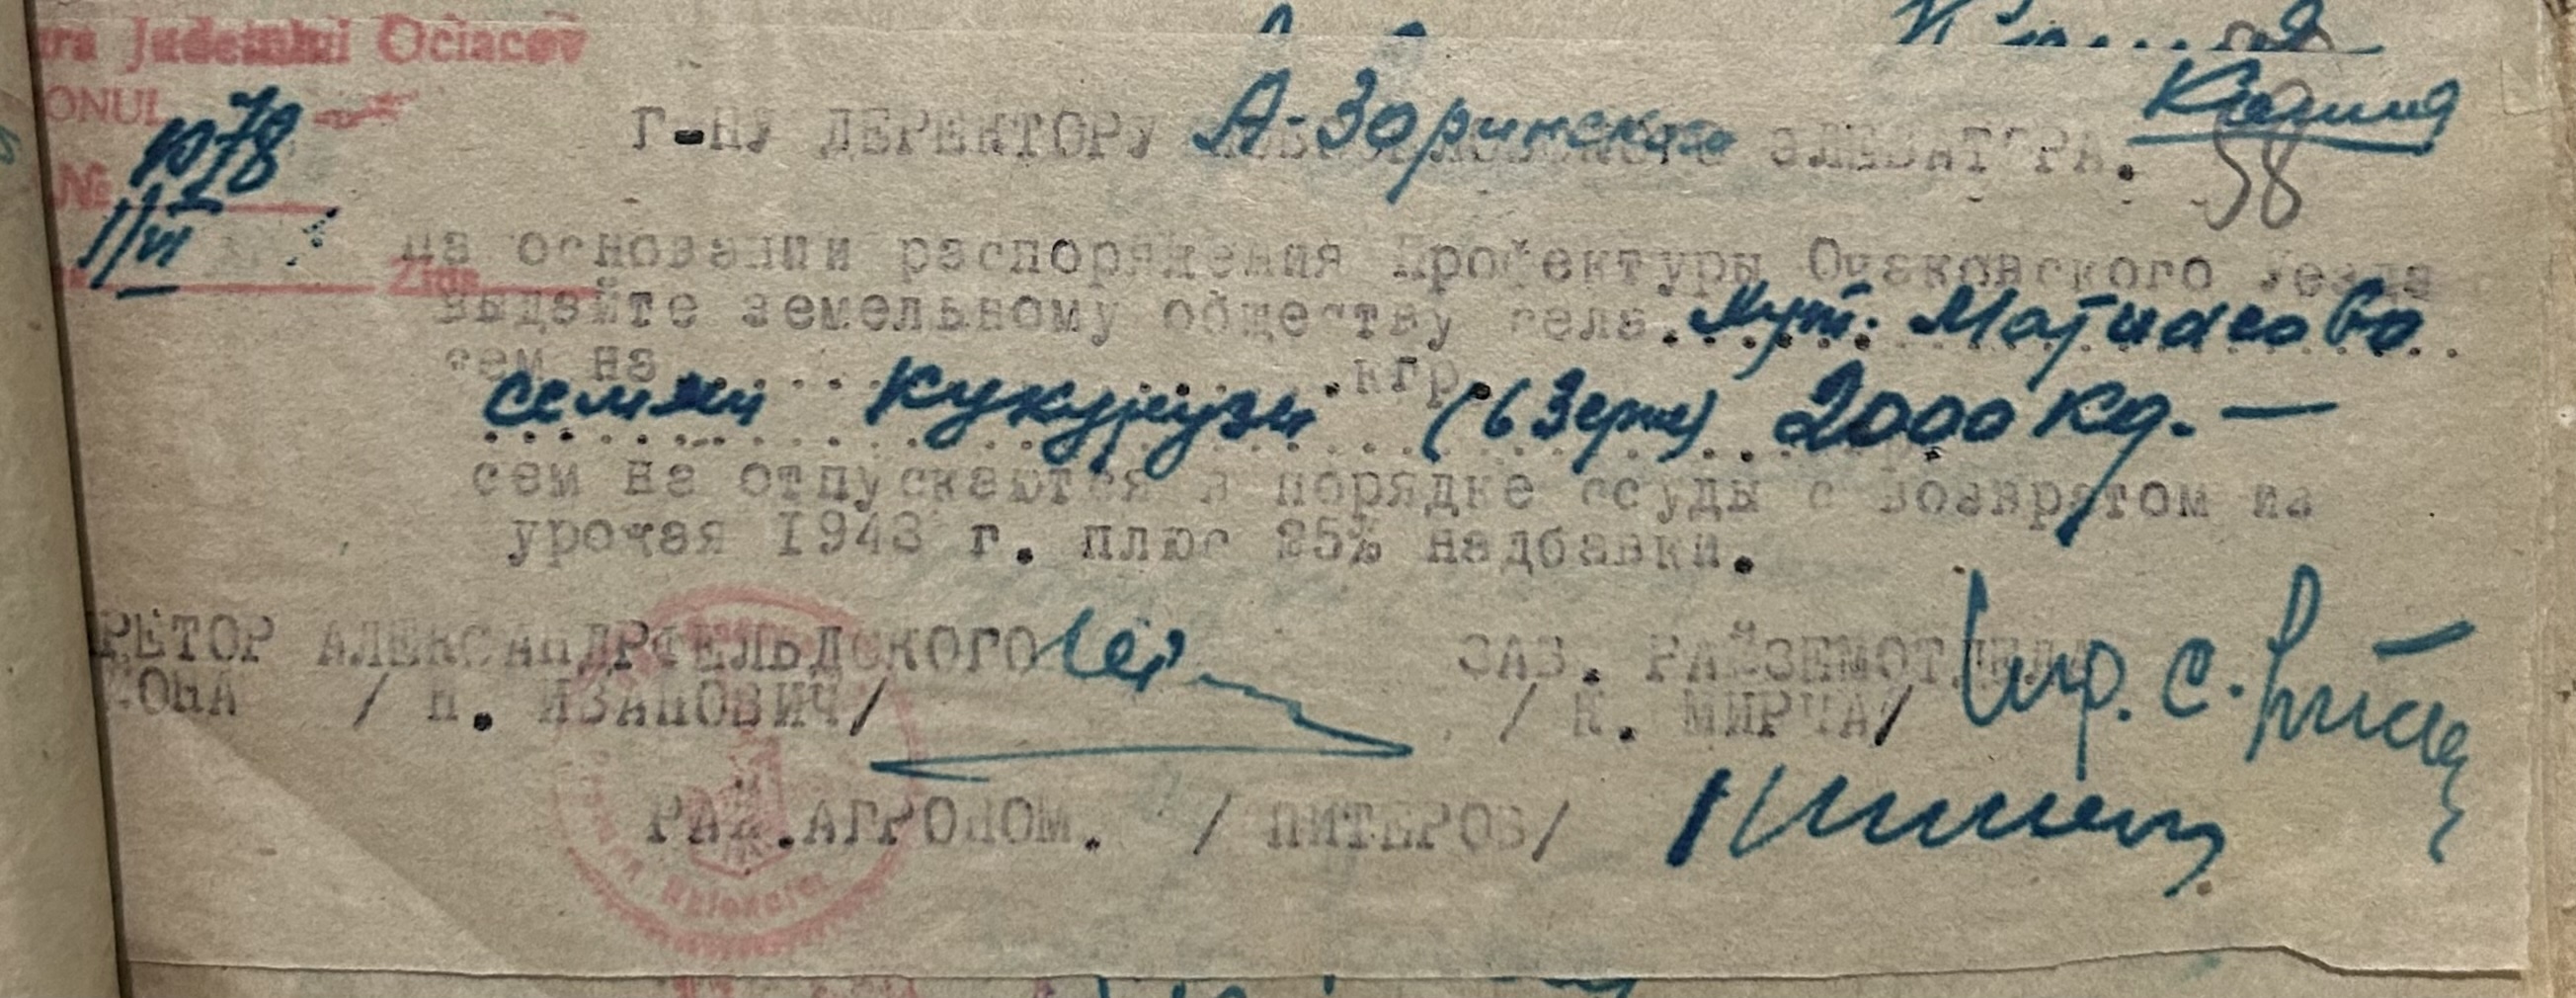 Judetului Ociacov
Г-НУ ДЕРЕКТОРУ А-Зоринского ЭЛЕВАТОРА.
Копия
58
1078
1/VI
№
Ziua
на основании распоряжения Профектуры Очаковского уезда
выдайте земельному обществу села Хут. Матиасово
сем на ........ кгр.
семян Кукурузы (в Зерне) 2000 кг. —
сем на отпускаются в порядке ссуды с возвратом из
урочая 1943 г. плюс 25% надбавки.
РЕТОР АЛЕКСАНДРФЕЛЬДСКОГО
ЙОНА / Н. ИВАНОВИЧ/
ЗАВ. РАЙЗЕМОТДЕЛА
/ К. МИРЧА/
РАЙ.АГРОНОМ. / ПИТЕРОВ/